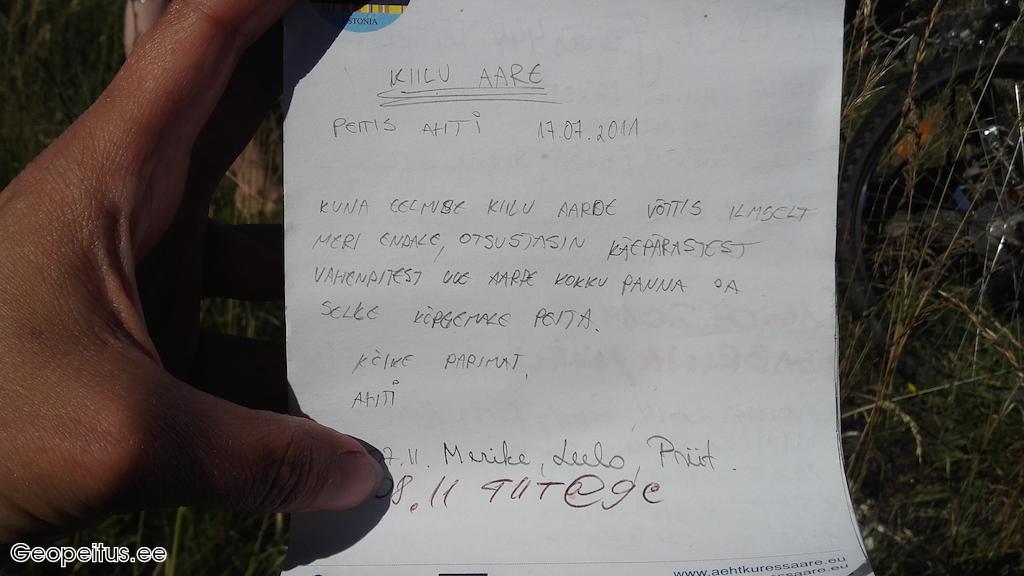 ESTONIA
KIILU AARE
PEITIS AHTI 17.07.2011
KUNA EELMISE KIILU AARDE VÕTTIS ILMSELT
MERI ENDALE, OTSUSTASIN KÄEPÄRASTEST
VAHENDITEST UUE AARDE KOKKU PANNA JA
SELLE KÕRGEMALE PEITA.
KÕIKE PARIMAT,
AHTI
7.11. Merike, Leelo, Priit.
08.11 TIIT@ge
www.aehtkuressaare.eu
Geopeitus.ee